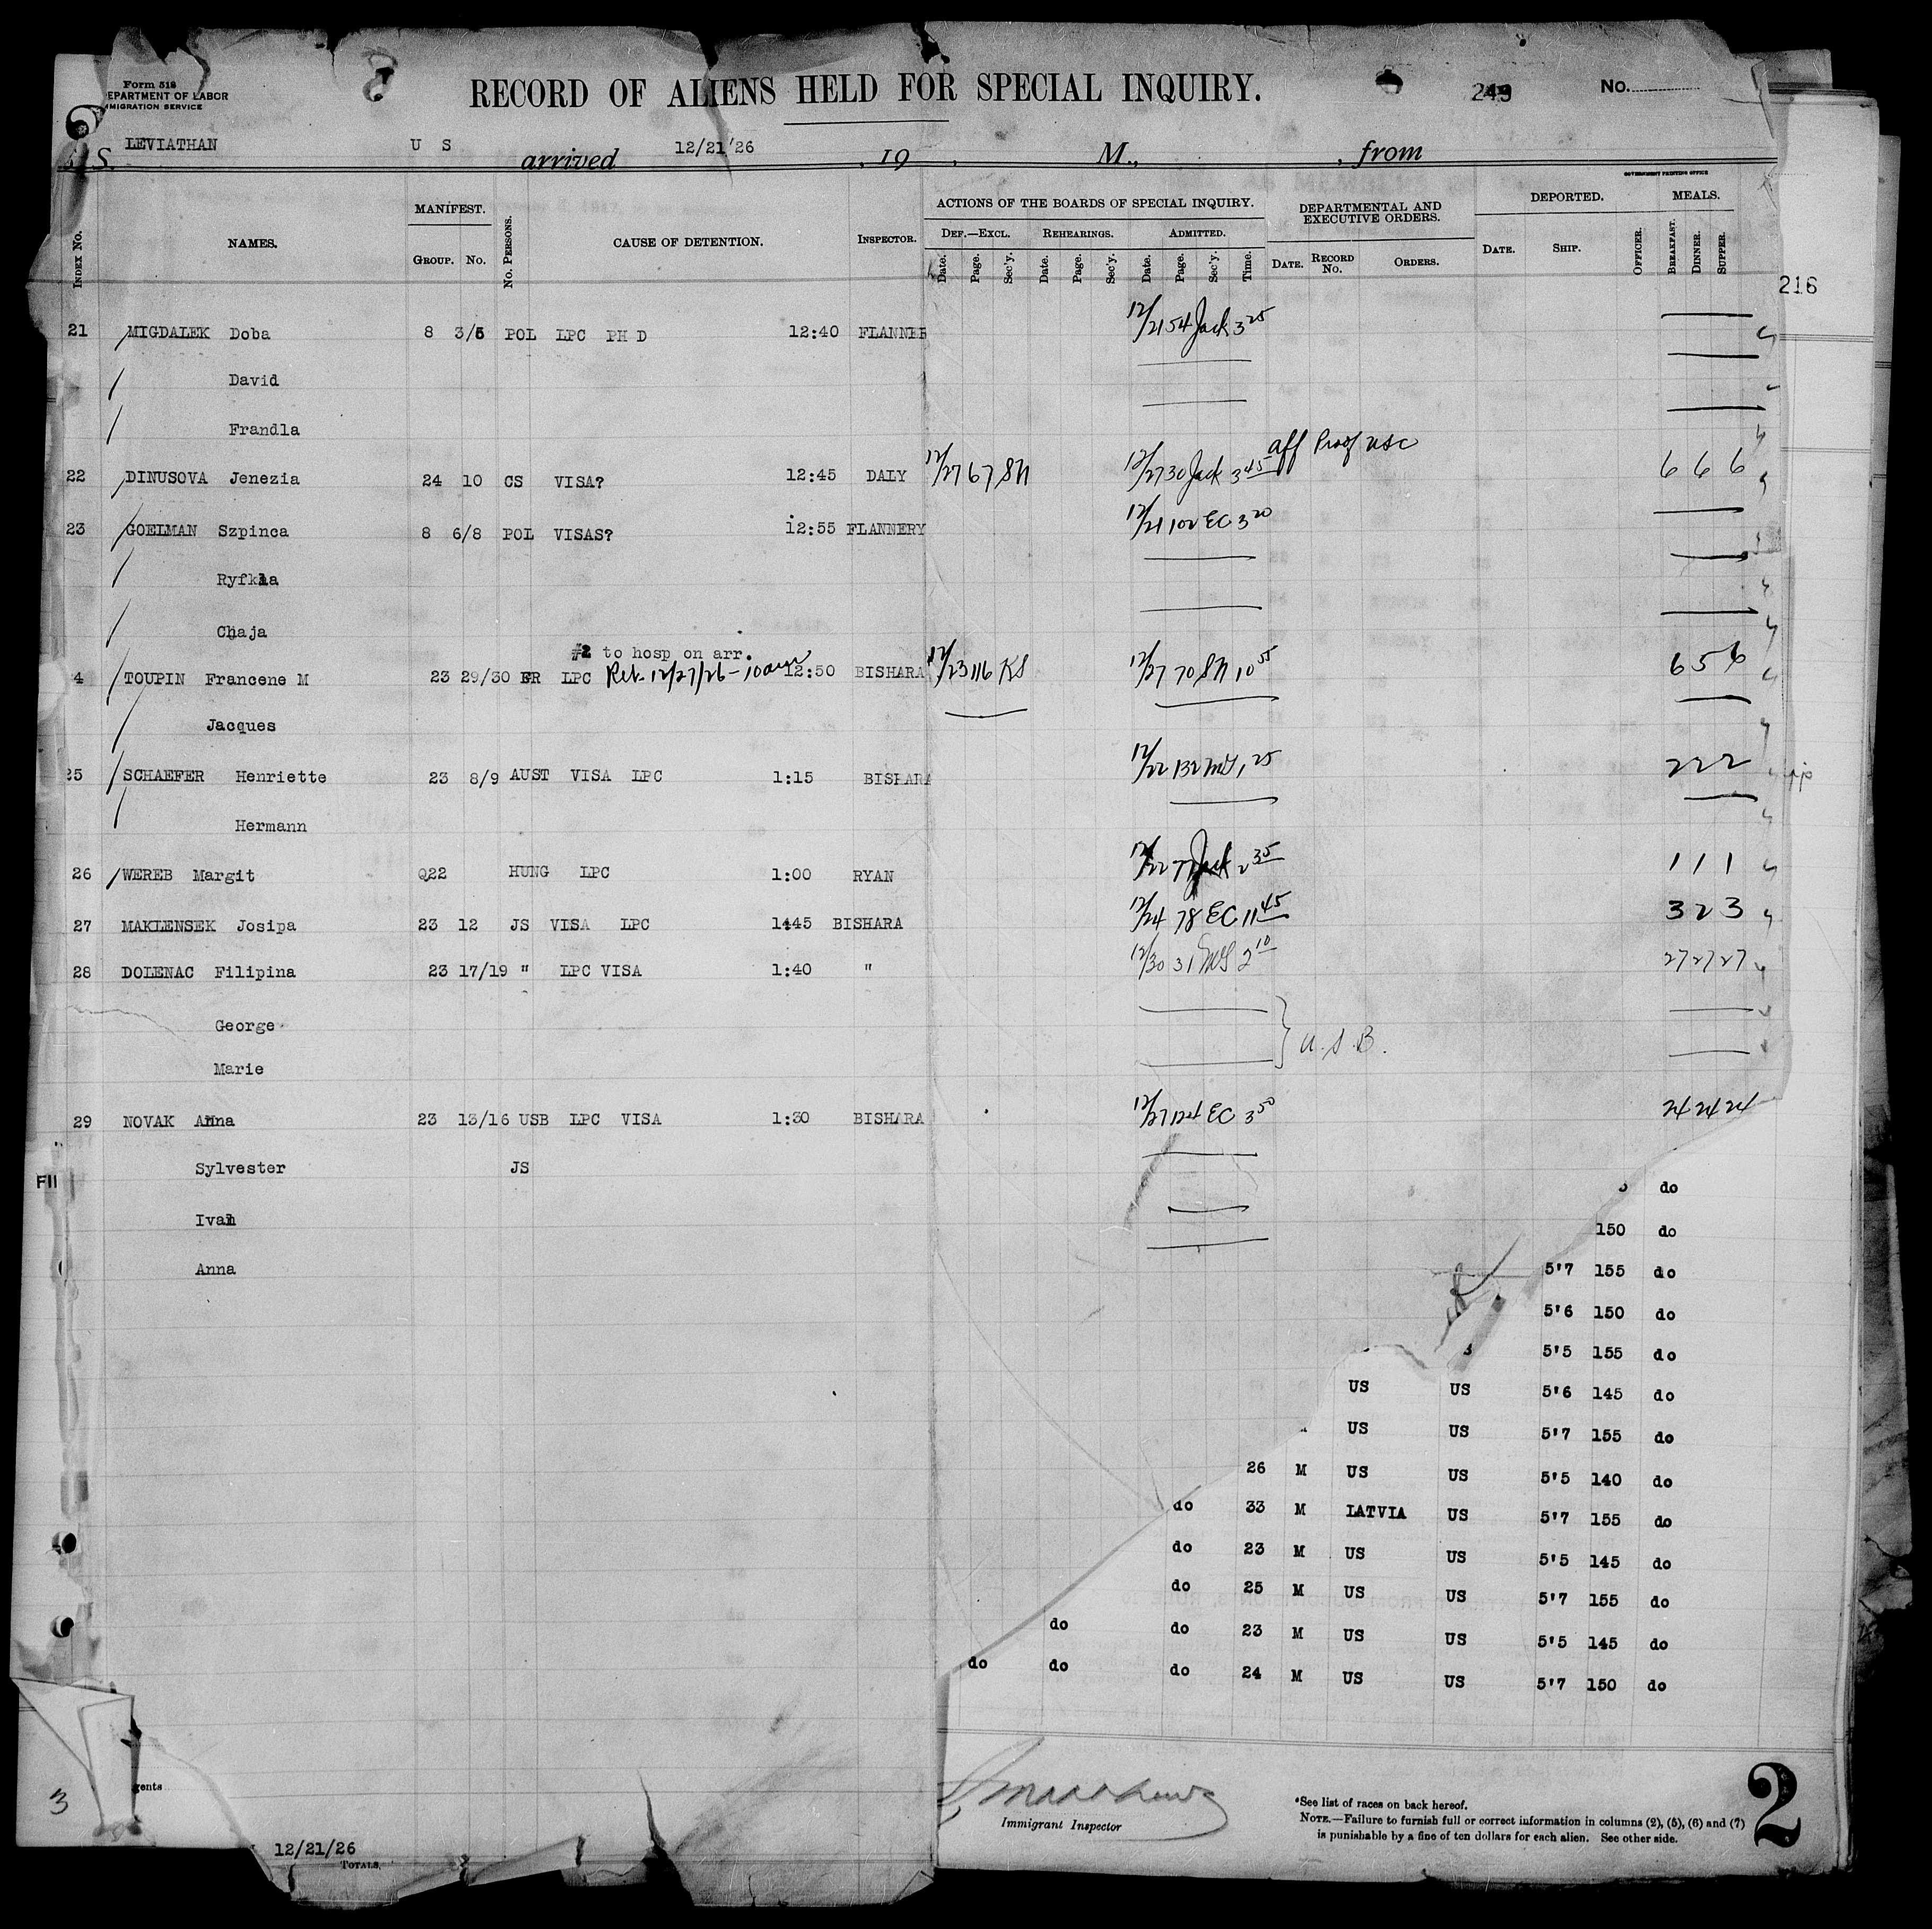 Form 518
DEPARTMENT OF LABOR
IMMIGRATION SERVICE
RECORD OF ALIENS HELD FOR SPECIAL INQUIRY.
249 No.
S. LEVIATHAN U S arrived 12/21/26 , 19 , M., , from
GOVERNMENT PRINTING OFFICE
INDEX No. NAMES. MANIFEST. GROUP. No. No. PERSONS. CAUSE OF DETENTION. INSPECTOR. ACTIONS OF THE BOARDS OF SPECIAL INQUIRY. DEPARTMENTAL AND EXECUTIVE ORDERS. DEPORTED. MEALS.
DEF.—EXCL. REHEARINGS. ADMITTED.
Date. Page. Sec'y. Date. Page. Sec'y. Date. Page. Sec'y. Time. DATE. RECORD No. ORDERS. DATE. SHIP. OFFICER. BREAKFAST. DINNER. SUPPER.
216
21 MIGDALEK Doba 8 3/5 POL LPC PH D 12:40 FLANNER 12/21 54 Jack 3 25
David
Frandla
aff Proof usc
22 DINUSOVA Jenezia 24 10 CS VISA? 12:45 DALY 12/27 67 SN 12/27 30 Jack 3 45 6 6 6
23 GOELMAN Szpinca 8 6/8 POL VISAS? 12:55 FLANNERY 12/21 102 EC 3 20
Ryfkla
Chaja
#2 to hosp on arr.
4 TOUPIN Francene M 23 29/30 FR LPC Ret. 12/27/26 - 10 am 12:50 BISHARA 12/23 116 KS 12/27 70 SN 10 55 6 5 6
Jacques
25 SCHAEFER Henriette 23 8/9 AUST VISA LPC 1:15 BISHARA 12/22 132 MS 1 25 2 2 2
Hermann
26 WEREB Margit Q22 HUNG LPC 1:00 RYAN 12/22 77 Jack 2 35 1 1 1
27 MAKLENSEK Josipa 23 12 JS VISA LPC 1:45 BISHARA 12/24 78 EC 11 45 3 2 3
28 DOLENAC Filipina 23 17/19 " LPC VISA 1:40 " 12/30 31 MS 2 10 27 27 27
George
U.S.B.
Marie
29 NOVAK Anna 23 13/16 USB LPC VISA 1:30 BISHARA 12/27 124 EC 3 50 24 24 24
Sylvester JS
FII
do
Ivan
150 do
Anna
5'7 155 do
5'6 150 do
5'5 155 do
US US 5'6 145 do
US US 5'7 155 do
26 M US US 5'5 140 do
do 33 M LATVIA US 5'7 155 do
do 23 M US US 5'5 145 do
do 25 M US US 5'7 155 do
do do 23 M US US 5'5 145 do
do do do 24 M US US 5'7 150 do
gents
3
Immigrant Inspector
*See list of races on back hereof.
NOTE.—Failure to furnish full or correct information in columns (2), (5), (6) and (7)
is punishable by a fine of ten dollars for each alien. See other side.
2
12/21/26
TOTALS.